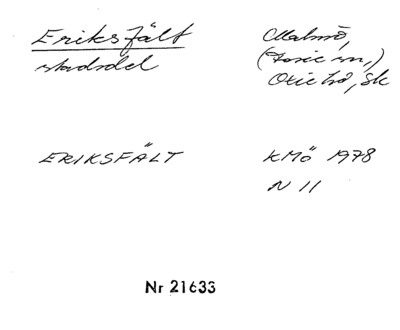 Eriksfält Malmö,
stadsdel (Fosie sn,)
Oxie hd, Sk
ERIKSFÄLT KMö 1978
N 11
Nr 21633